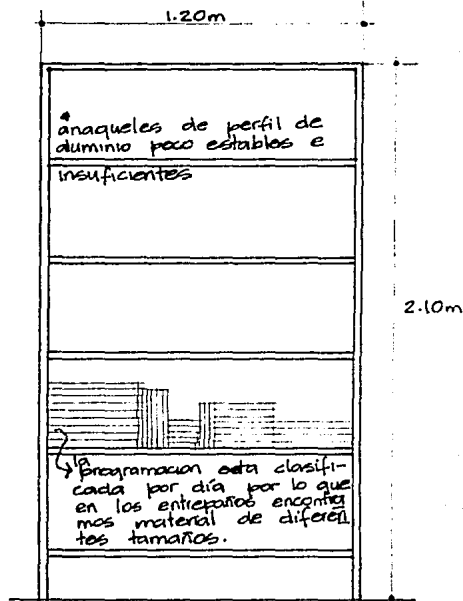 1.20m
anaqueles de perfil de
aluminio poco estables e
insuficientes
2.10m
la
programacion esta clasifi-
cada por día por lo que
en los entrepaños encontra
mos material de diferen
tes tamaños.